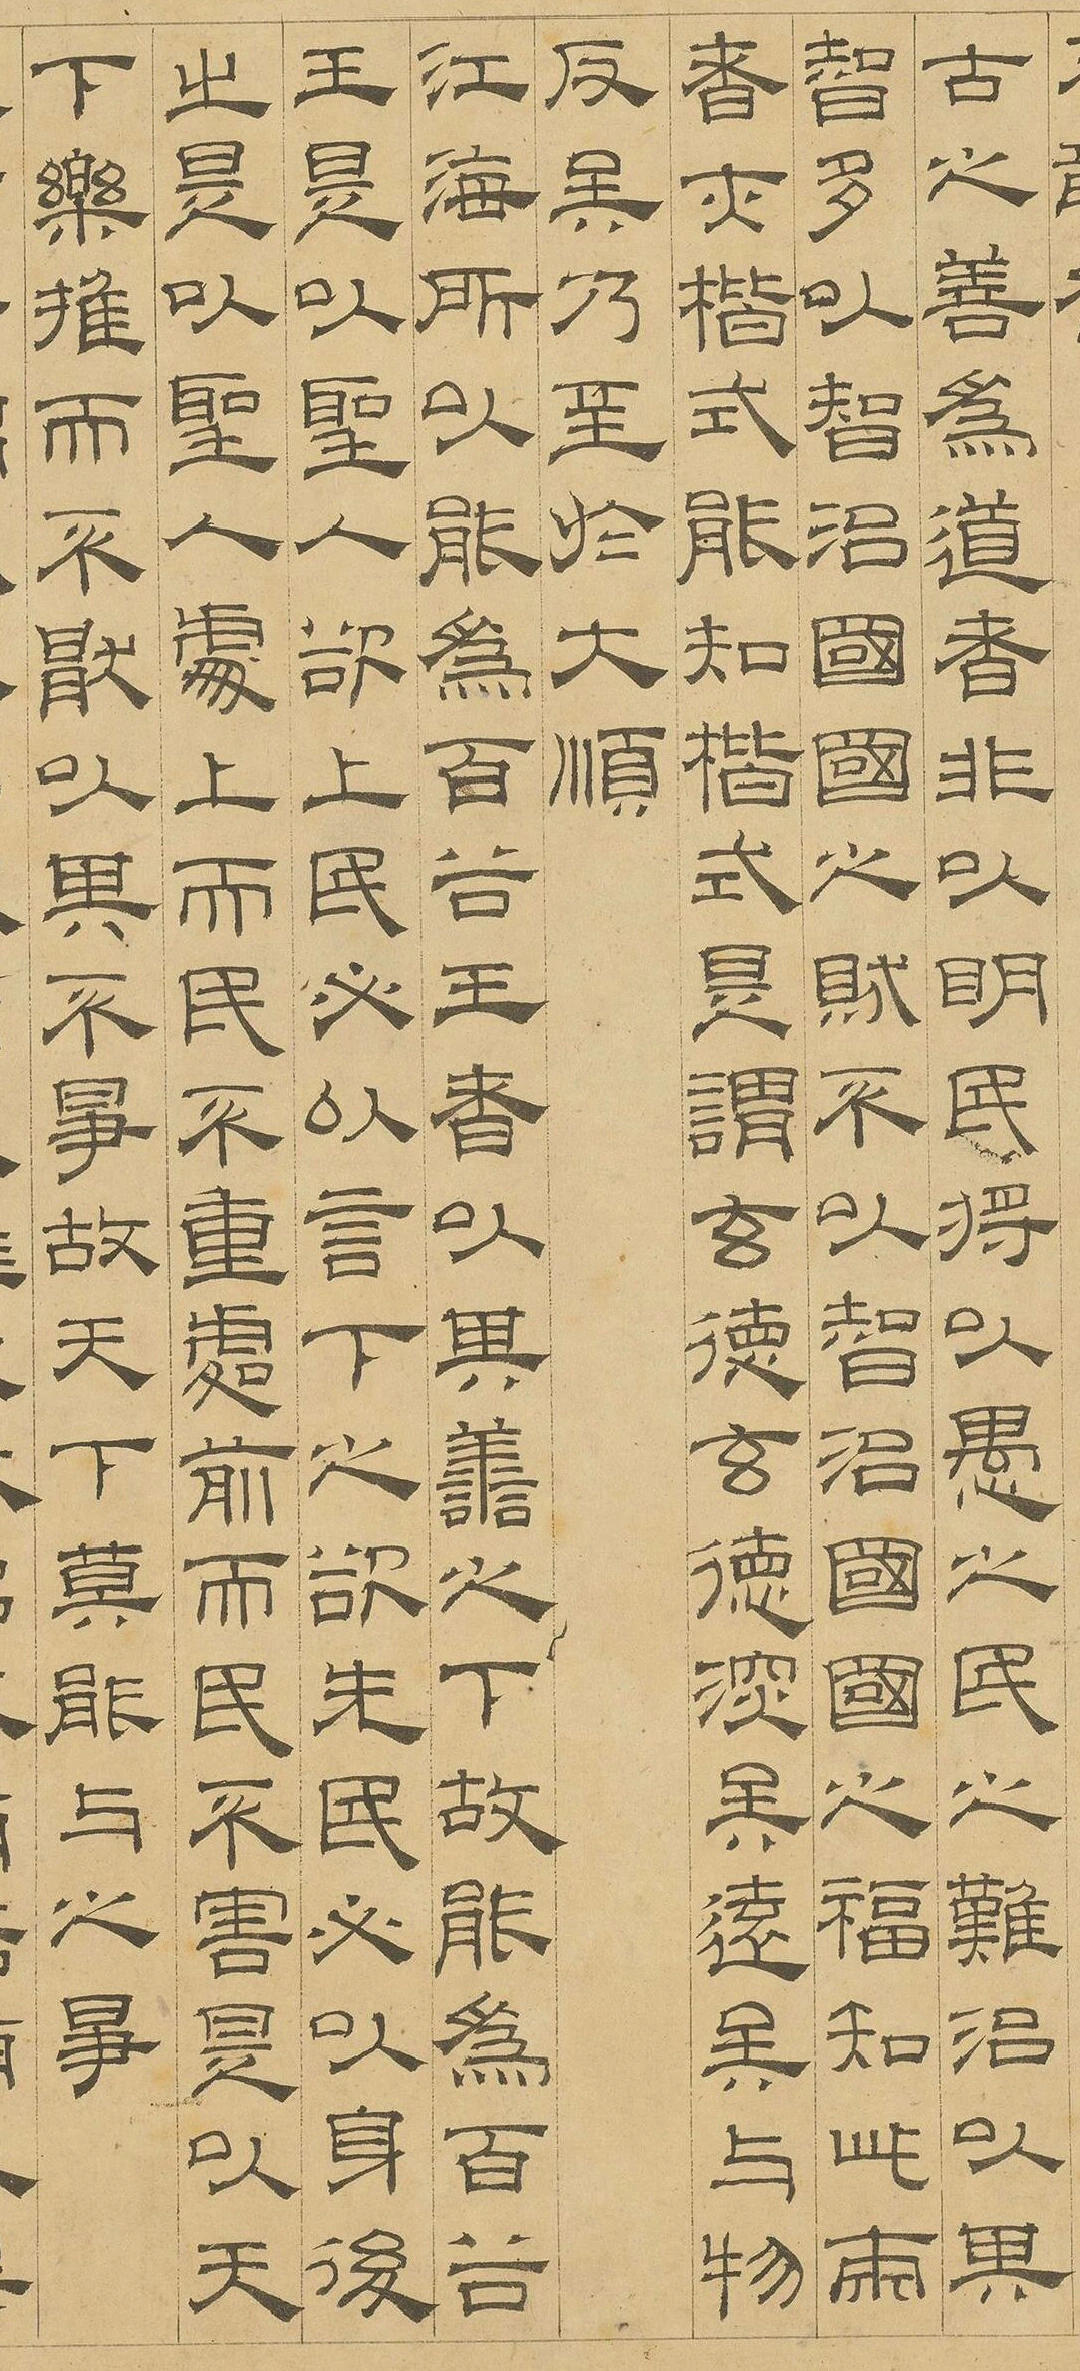 古之善爲道者非以明民將以愚之民之難治以其
智多以智治國國之賊不以智治國國之福知此兩
者亦楷式能知楷式是謂玄德玄德深矣遠矣与物
反矣乃至於大順
江海所以能爲百谷王者以其善之下故能爲百谷
王是以聖人欲上民必以言下之欲先民必以身後
之是以聖人處上而民不重處前而民不害是以天
下樂推而不猒以其不爭故天下莫能与之爭